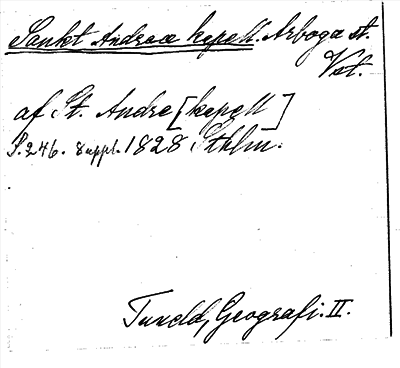 Sankt Andreæ kapell. Arboga st.
Vstl.
af St. Andre [kapell]
S. 246. Suppl. 1828 Sthlm.
Tuneld, Geografi. II.